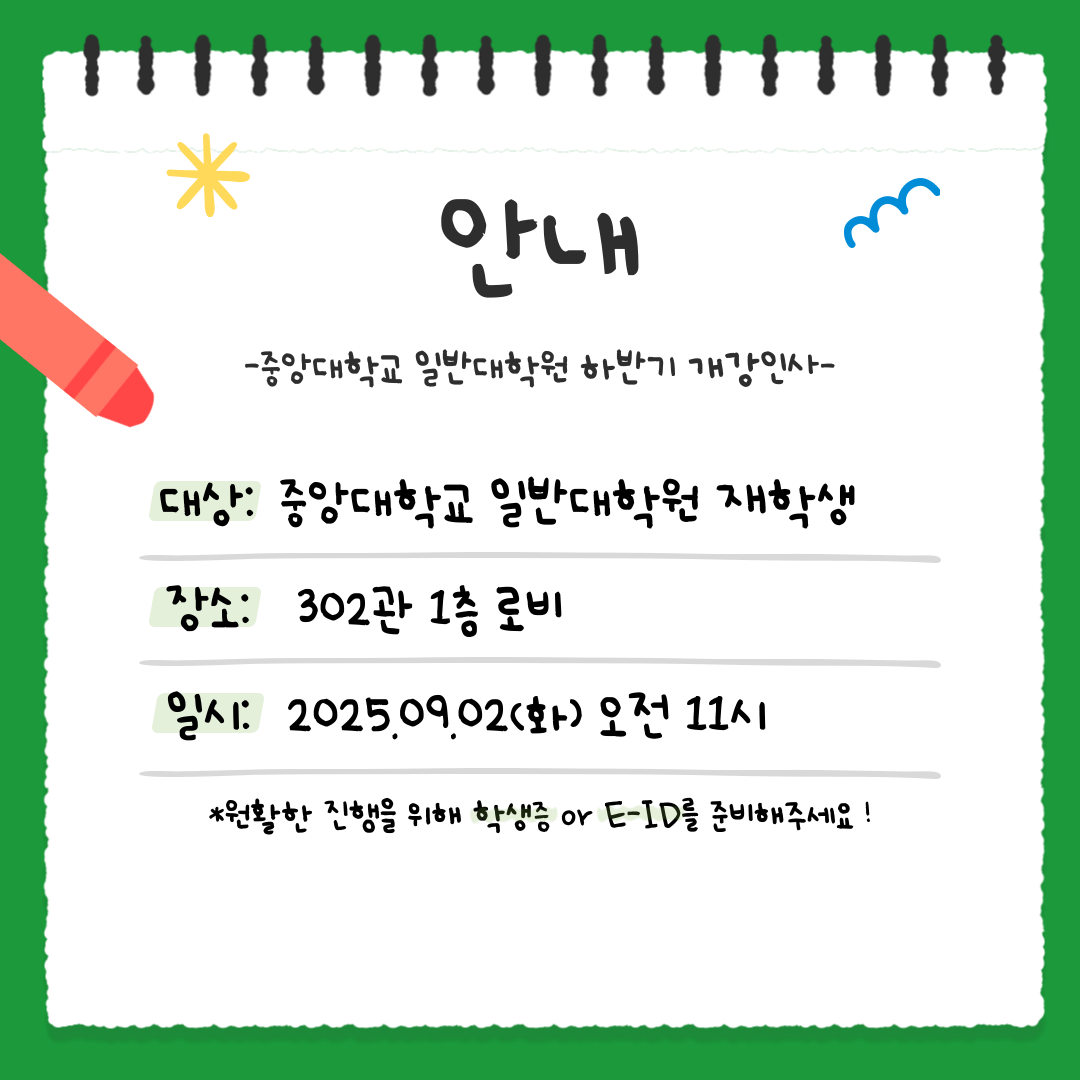 안내
-중앙대학교 일반대학원 하반기 개강인사-
대상: 중앙대학교 일반대학원 재학생
장소: 302관 1층 로비
일시: 2025.09.02(화) 오전 11시
*원활한 진행을 위해 학생증 or E-ID를 준비해주세요!